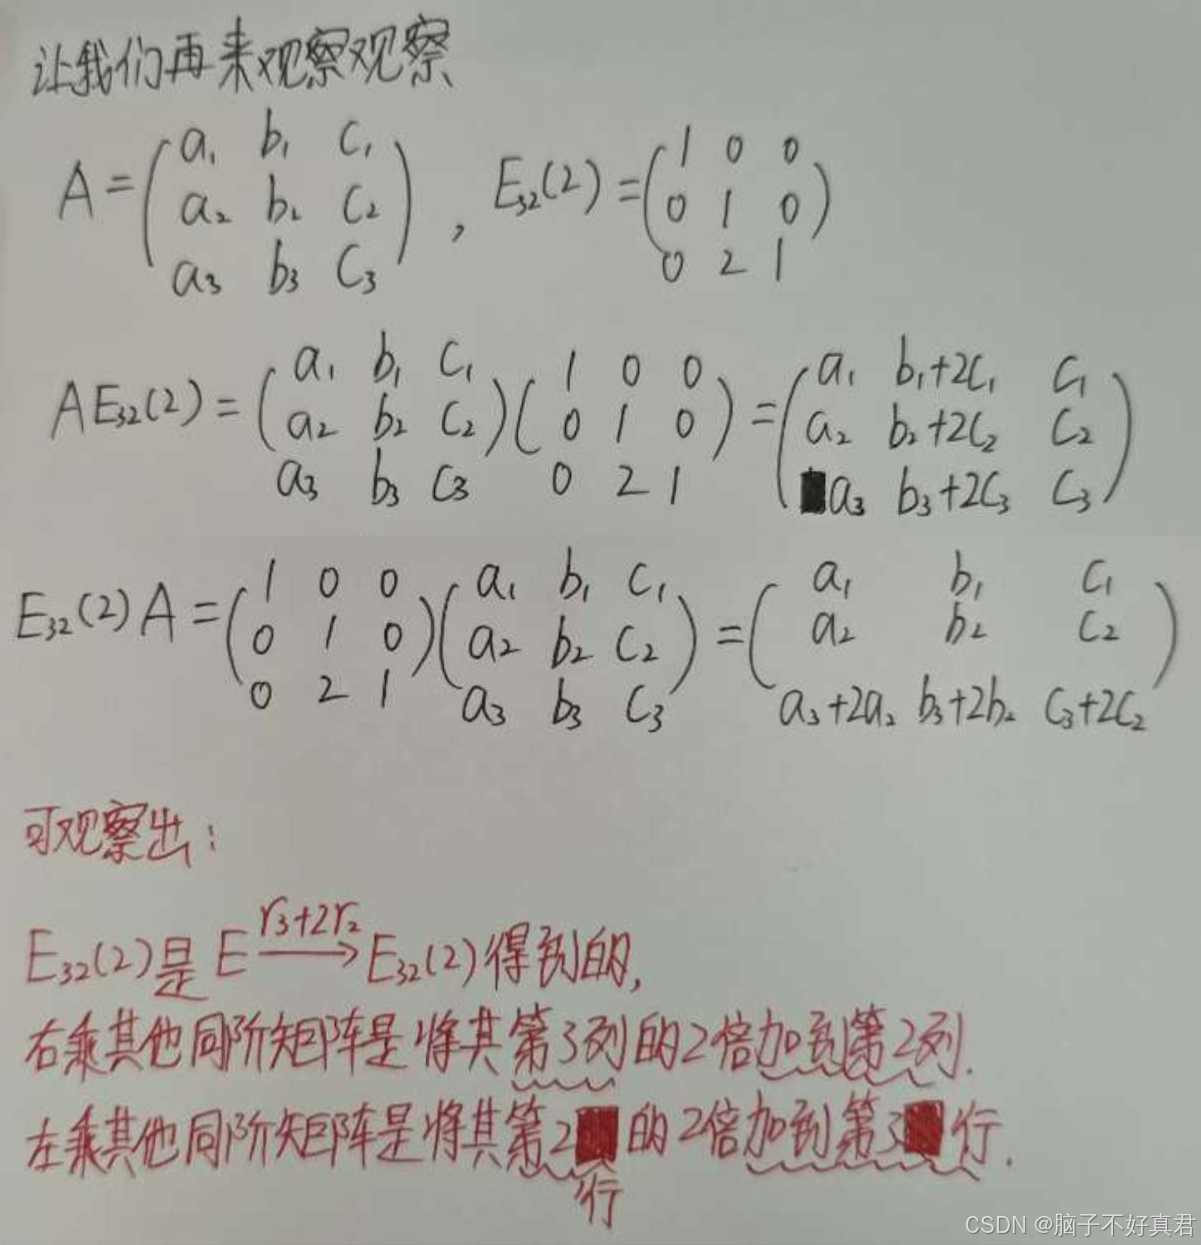 让我们再来观察观察
A = ( a₁ b₁ c₁ ; a₂ b₂ c₂ ; a₃ b₃ c₃ ) , E₃₂(2) = ( 1 0 0 ; 0 1 0 ; 0 2 1 )
AE₃₂(2) = ( a₁ b₁ c₁ ; a₂ b₂ c₂ ; a₃ b₃ c₃ )( 1 0 0 ; 0 1 0 ; 0 2 1 ) = ( a₁ b₁+2c₁ c₁ ; a₂ b₂+2c₂ c₂ ; a₃ b₃+2c₃ c₃ )
E₃₂(2)A = ( 1 0 0 ; 0 1 0 ; 0 2 1 )( a₁ b₁ c₁ ; a₂ b₂ c₂ ; a₃ b₃ c₃ ) = ( a₁ b₁ c₁ ; a₂ b₂ c₂ ; a₃+2a₂ b₃+2b₂ c₃+2c₂ )
可观察出:
r₃+2r₂
E₃₂(2)是 E → E₃₂(2)得到的,
右乘其他同阶矩阵是将其第3列的2倍加到第2列.
左乘其他同阶矩阵是将其第2行的2倍加到第3行.
CSDN @脑子不好真君